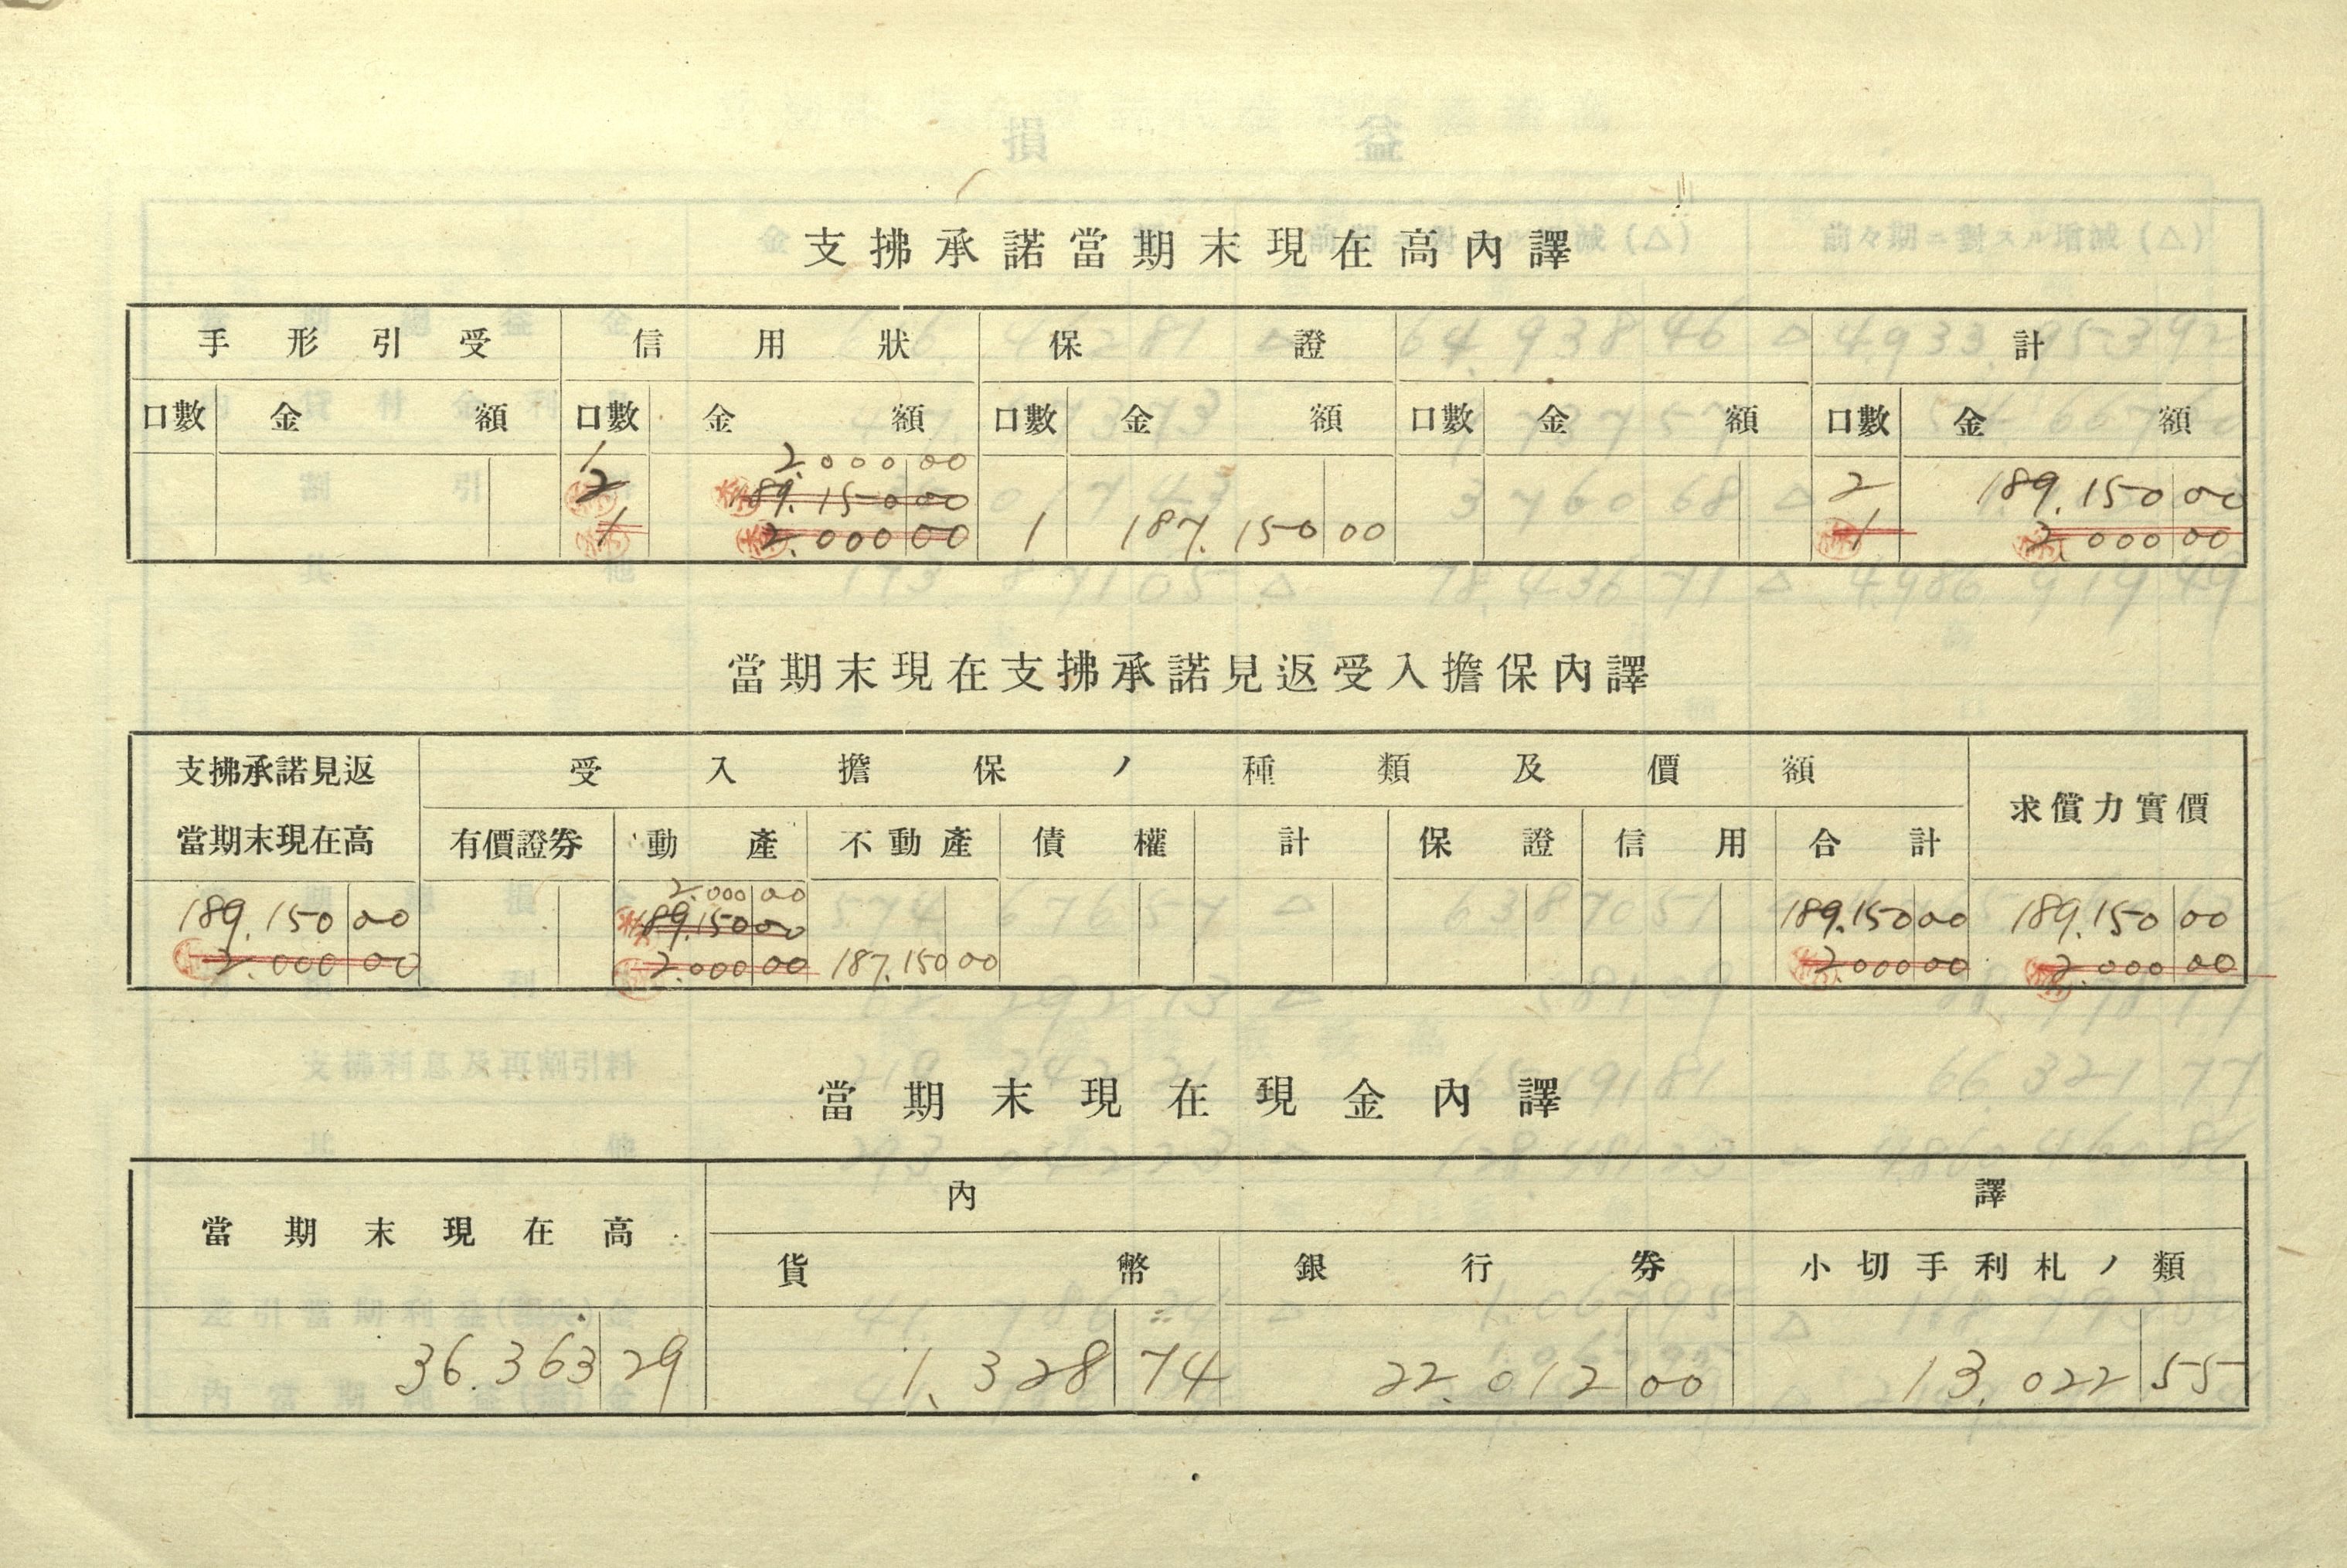 支拂承諾當期末現在高內譯
手形引受 信用狀 保證 計
口數 金額 口數 金額 口數 金額 口數 金額 口數 金額
1 2.000 00
2 189.150 00 2 189.150 00
1 2.000 00 1 187.150 00 1 2.000 00
當期末現在支拂承諾見返受入擔保內譯
支拂承諾見返 受入擔保ノ種類及價額
當期末現在高 有價證券 動產 不動產 債權 計 保證 信用 合計 求償力實價
2.000 00
189.150 00 189.150 00 189.150 00 189.150 00
2.000 00 2.000 00 187.150 00 2.000 00 2.000 00
當期末現在現金內譯
當期末現在高 內譯
貨幣 銀行券 小切手利札ノ類
36.363 29 1.328 74 22.012 00 13.022 55